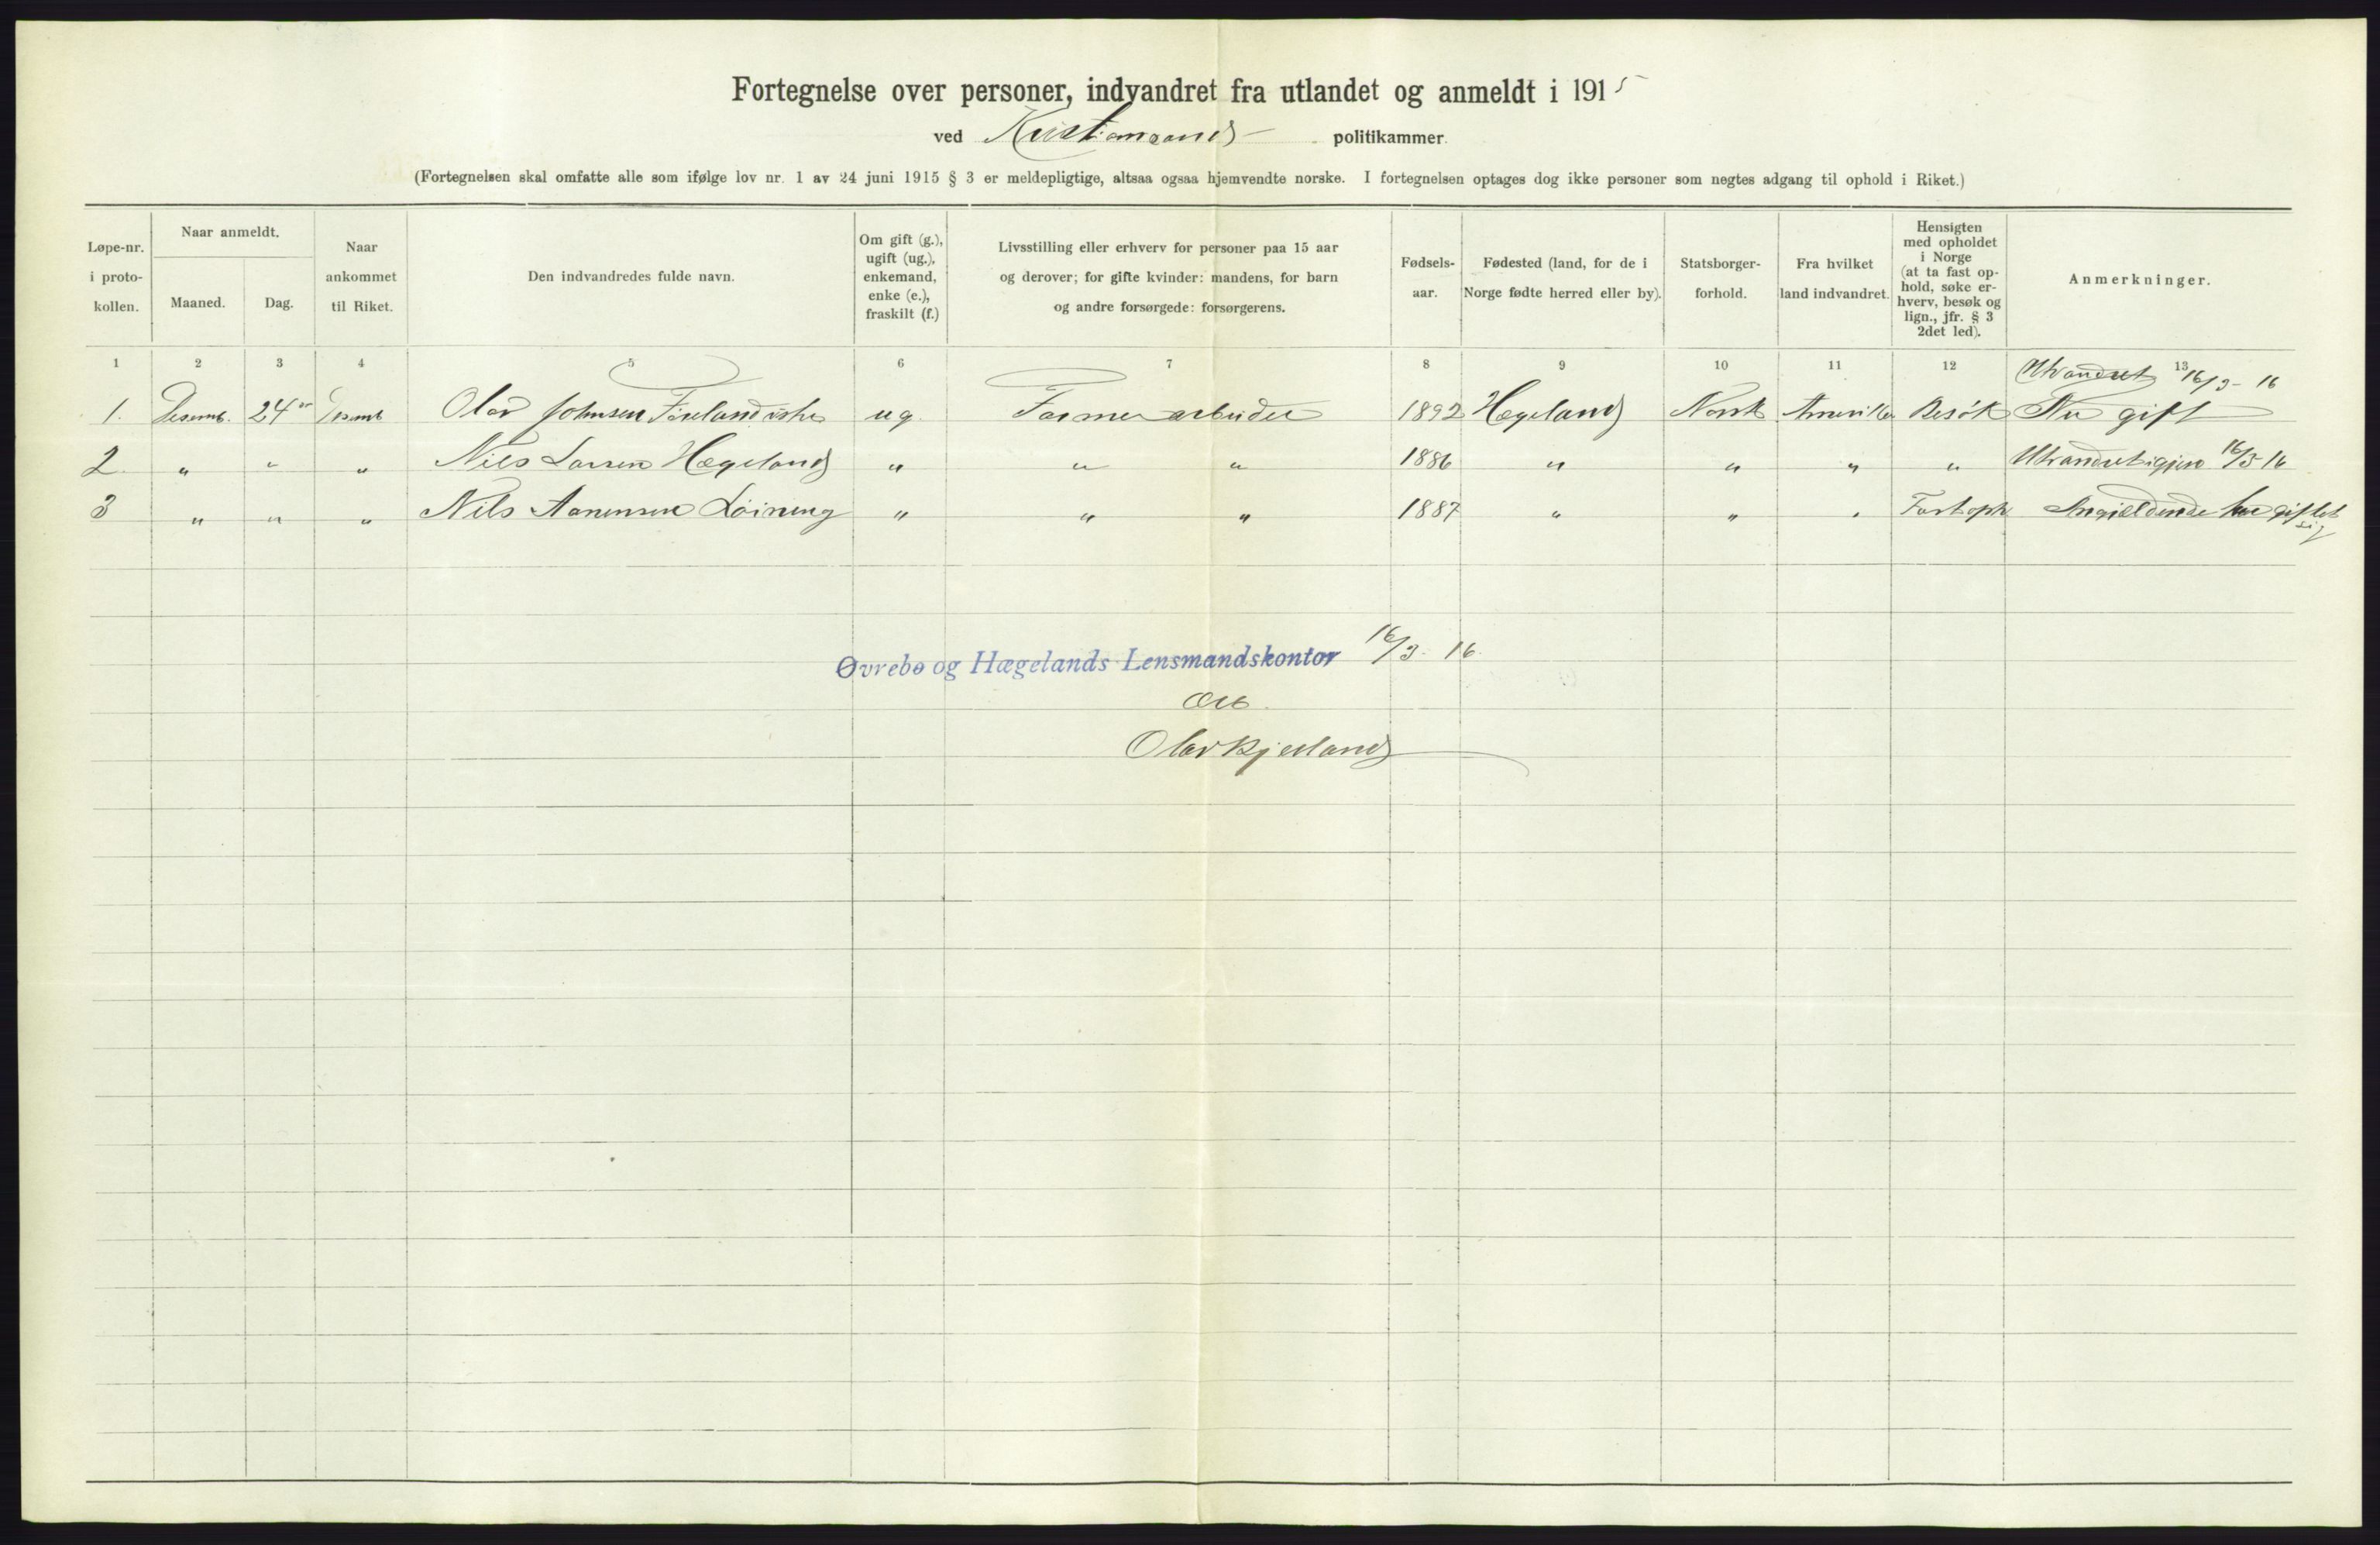 Fortegnelse over personer, indvandret fra utlandet og anmeldt i 1915
ved Kristiansands politikammer.
(Fortegnelsen skal omfatte alle som ifølge lov nr. 1 av 24 juni 1915 § 3 er meldepligtige, altsaa ogsaa hjemvendte norske. I fortegnelsen optages dog ikke personer som negtes adgang til ophold i Riket.)
Løpe-nr. i proto- kollen.
Naar anmeldt.
Maaned.
Dag.
Naar ankommet til Riket.
Den indvandredes fulde navn.
Om gift (g.), ugift (ug.), enkemand, enke (e.), fraskilt (f.)
Livsstilling eller erhverv for personer paa 15 aar
og derover; for gifte kvinder: mandens, for barn
og andre forsørgede: forsørgerens.
Fødsels- aar.
Fødested (land, for de i Norge fødte herred eller by).
Statsborger- forhold.
Fra hvilket land indvandret.
Hensigten med opholdet i Norge (at ta fast op- hold, søke er- hverv, besøk og lign., jfr. § 3 2det led).
Anmerkninger.
1 2 3 4 5 6 7 8 9 10 11 12 13
Utvandret 16/3-16
1. Desemb. 24 Desemb Olav Johnsen ug. Farmerarbeider 1892 Hægeland Norsk Amerika Besøk Nu gift
2 " " " Nils Larsen Hægeland " " " 1886 " " " " Utvandret igjen 16/3-16
3 " " " Nils Aanensen Løining " " " 1887 " " " Fast oph. Angjeldende har giftet sig
Øvrebø og Hægelands Lensmandskontor 16/3-16.
Olav Kjelland